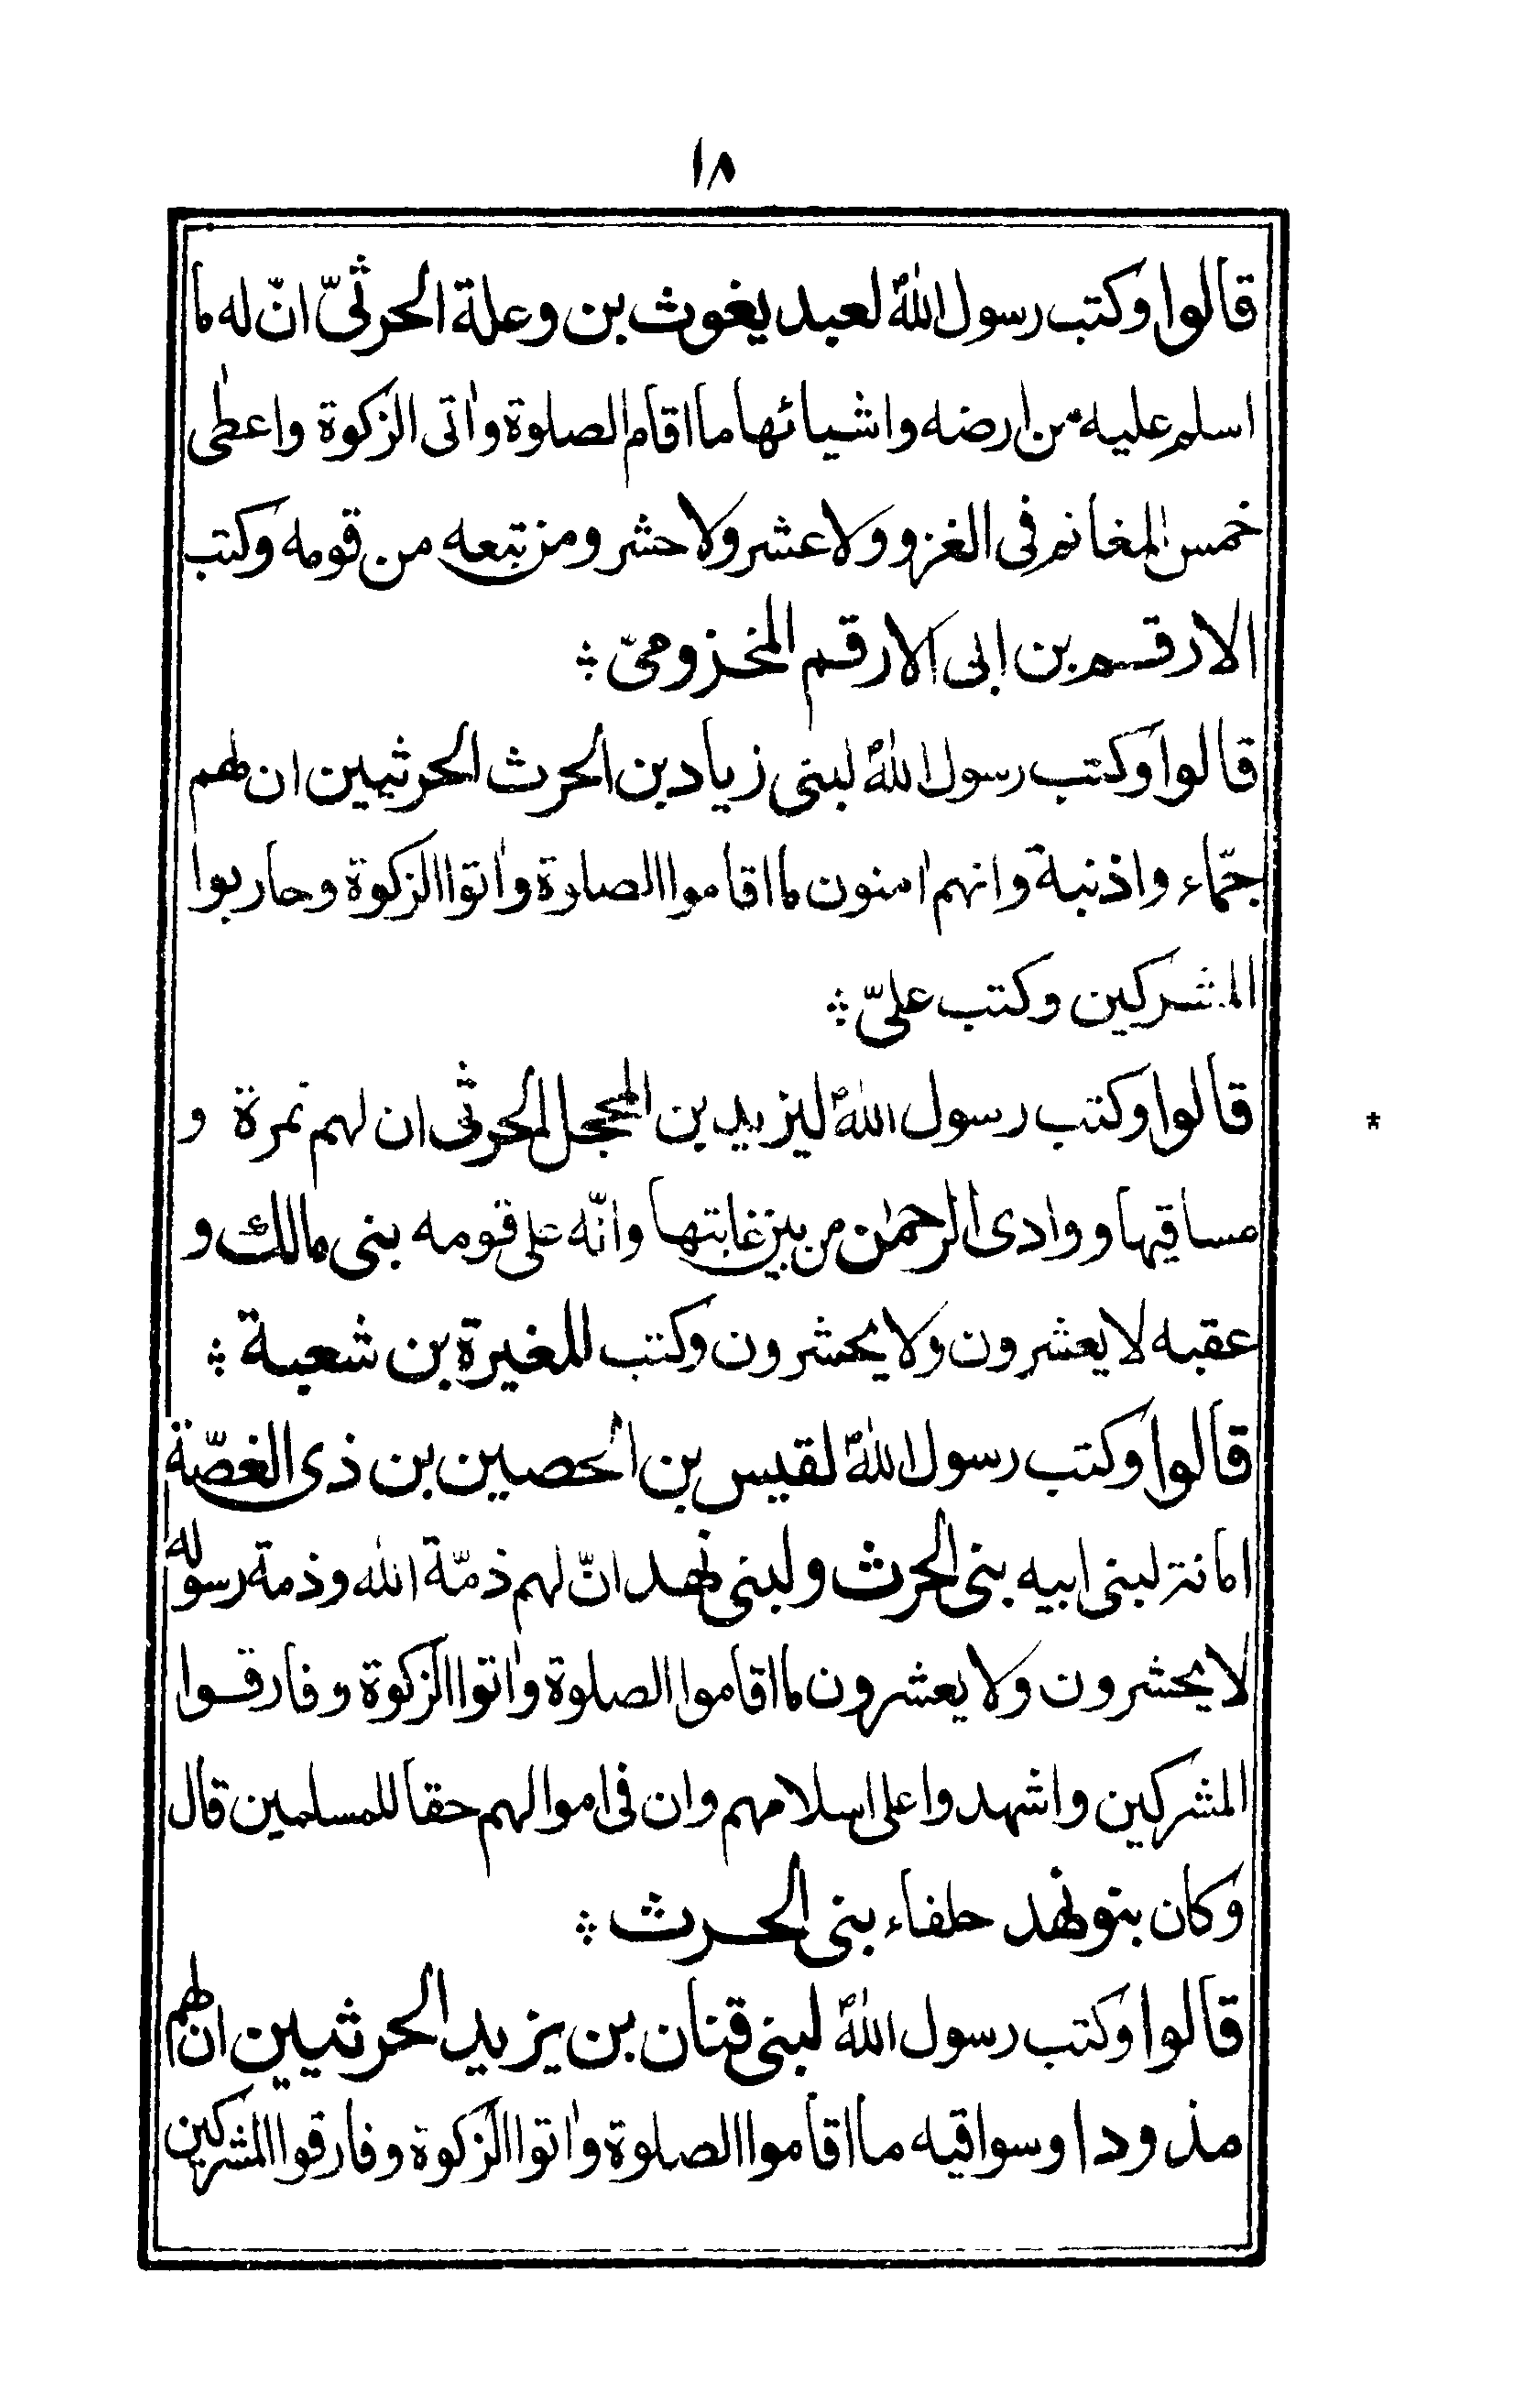 ١٨
قالوا وكتب رسول اللهؐ لعبد يغوث بن وعلة الحرثىّ انّ له ما
اسلم عليه من ارضه واشيائها ما اقام الصلوة واٰتى الزكوة واعطٰى
خمس المغانم فى الغزو ولا عشر ولا حشر ومن تبعه من قومه وكتب
الارقم بن ابى الارقم المخزومىّ ؞
قالوا وكتب رسول اللهؐ لبنى زياد بن الحرث الحرثيين ان لهم
جمّاء واذنبة وانهم امنون ما اقاموا الصلوة واٰتوا الزكوة وحاربوا
المشركين وكتب علىّ ؞
قالوا وكتب رسول اللهؐ ليزيد بن المحجل الحرثى ان لهم نمرة و
*
مساقيها ووادى الرحمٰن من بين غابتها وانّه على قومه بنى مالك و
عقبه لا يعشرون ولا يحشرون وكتب للمغيرة بن شعبة ؞
قالوا وكتب رسول اللهؐ لقيس بن الحصين بن ذى الغصّة
امانة لبنى ابيه بنى الحرث ولبنى نهد انّ لهم ذمّة الله وذمة رسوله
لا يحشرون ولا يعشرون ما اقاموا الصلوة واٰتوا الزكوة وفارقوا
المشركين واشهدوا على اسلامهم وان فى اموالهم حقا للمسلمين قال
وكان بنو نهد حلفاء بنى الحرث ؞
قالوا وكتب رسول اللهؐ لبنى قنان بن يزيد الحرثيين ان لهم
مذودا وسواقيه ما اقاموا الصلوة واٰتوا الزكوة وفارقوا المشركين